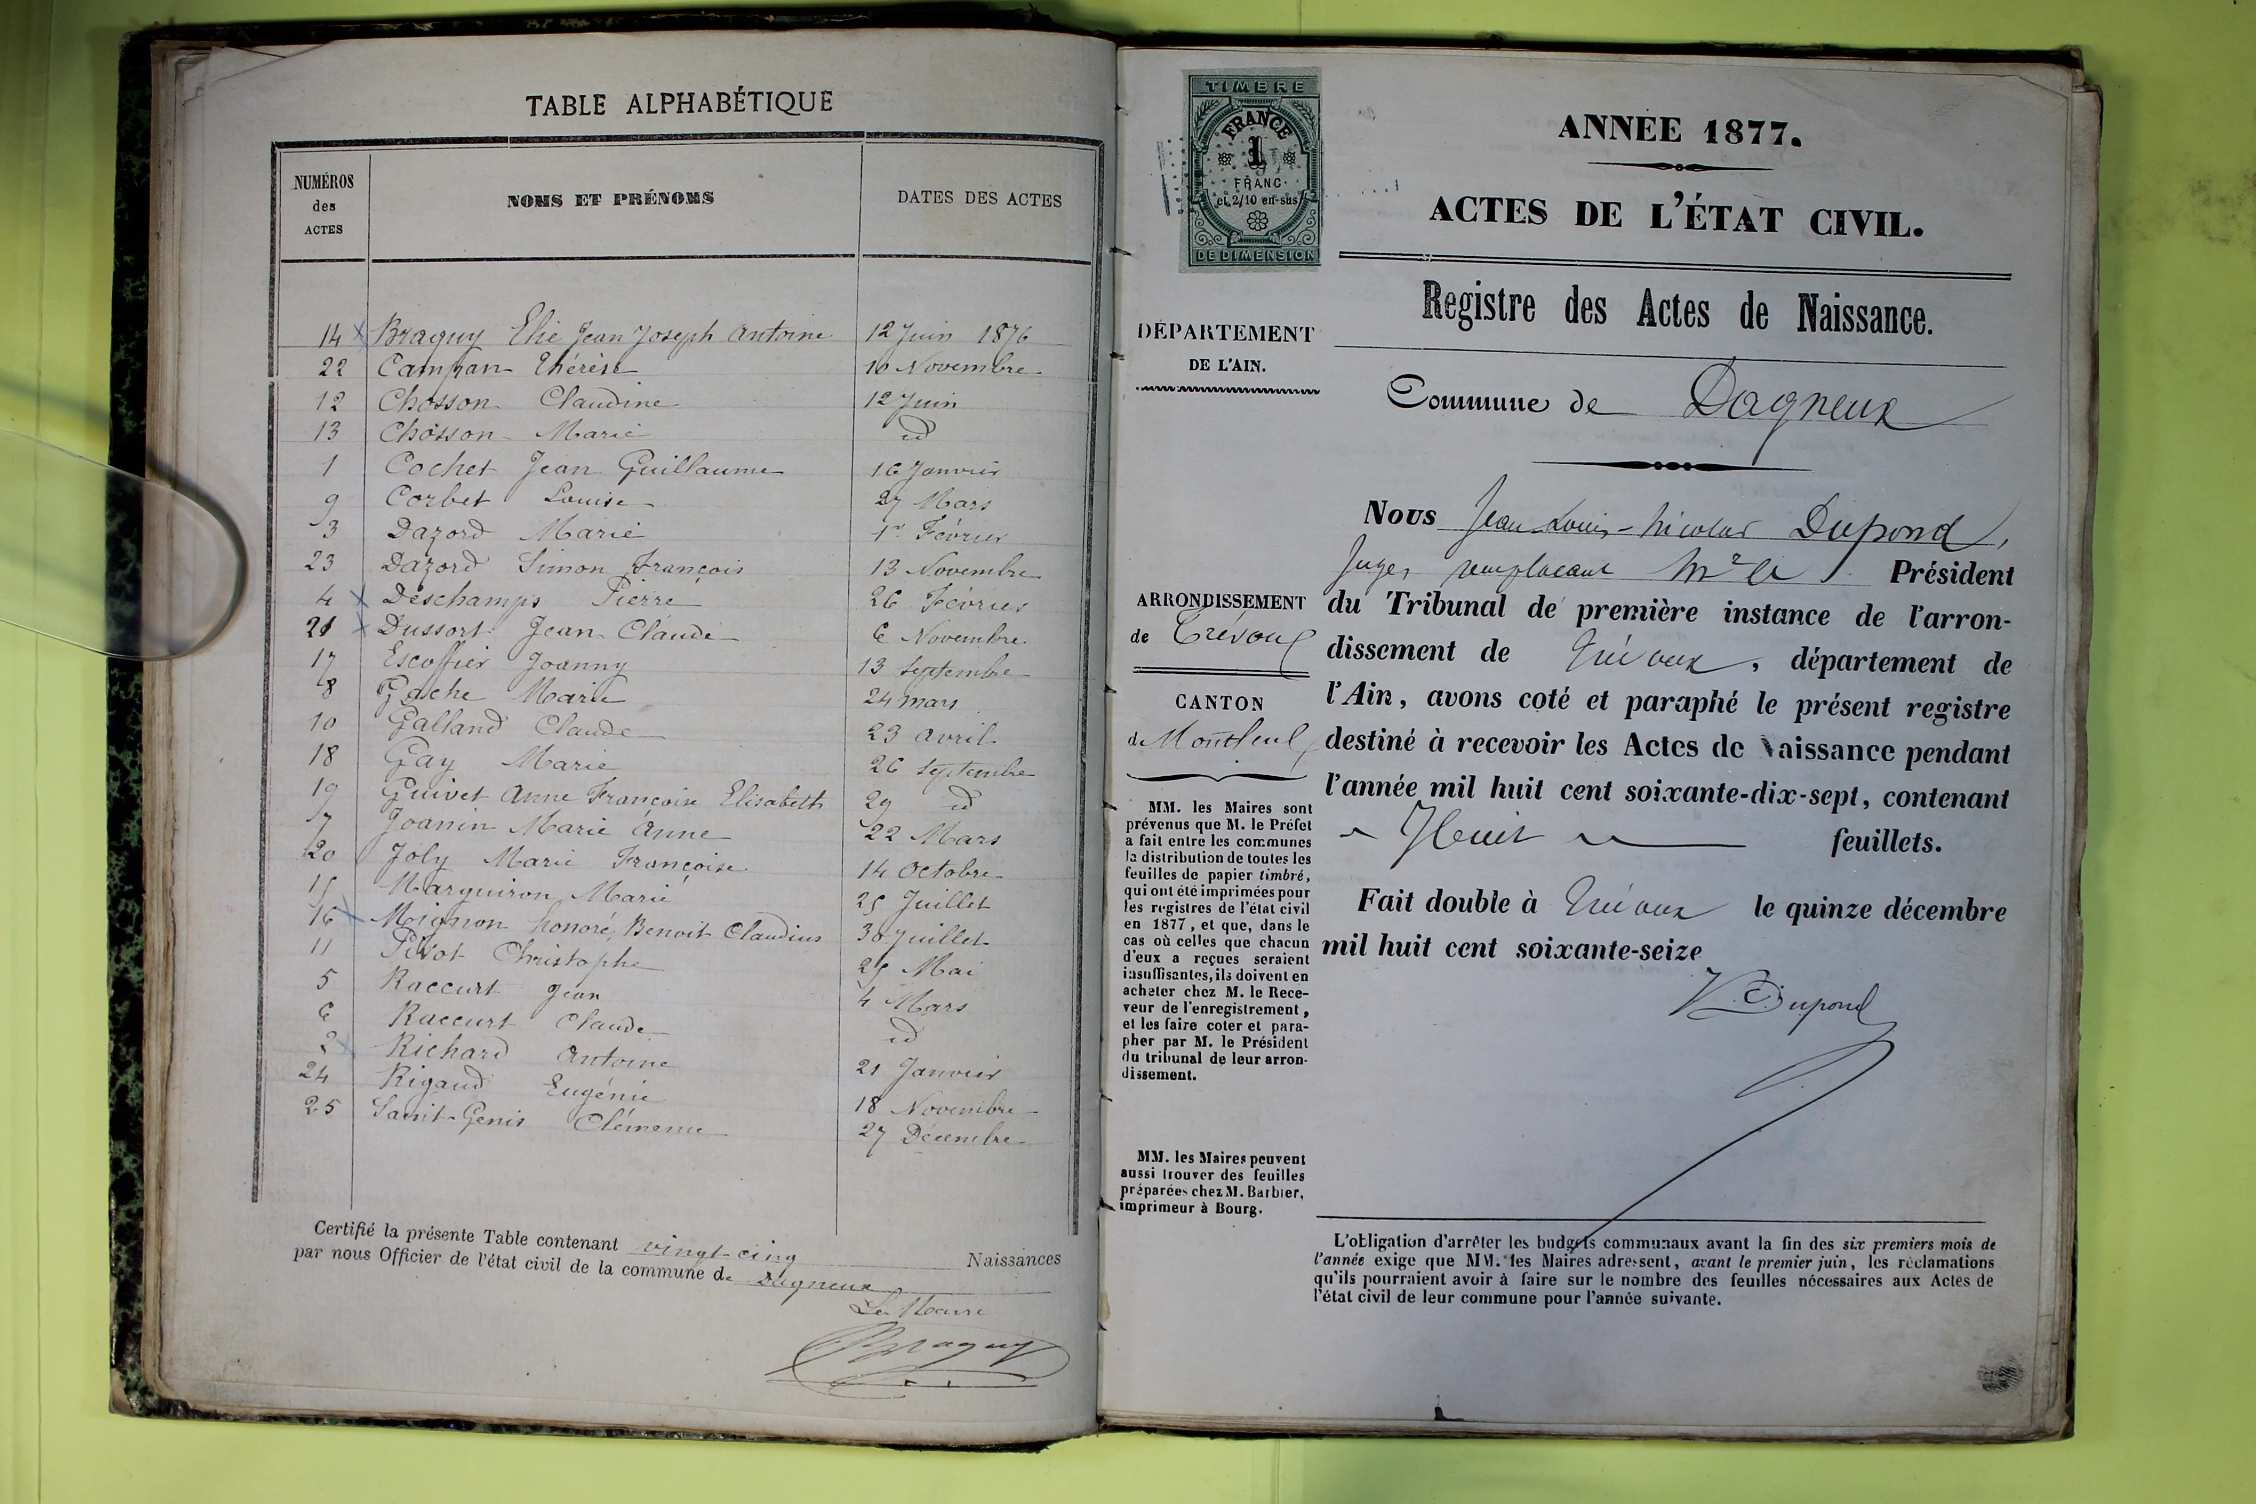 TABLE ALPHABÉTIQUE
NUMÉROS des ACTES NOMS ET PRÉNOMS DATES DES ACTES
14 Braguy Elie Jean Joseph Antoine 12 Juin 1876
22 Campan Thérèse 10 Novembre
12 Chosson Claudine 12 Juin
13 Chosson Marie id
1 Cochet Jean Guillaume 16 Janvier
9 Corbet Louise 27 Mars
3 Dazord Marie 1er Février
23 Dazord Simon François 13 Novembre
4 Deschamps Pierre 26 Février
21 Dussort Jean Claude 6 Novembre
17 Escoffier Joanny 13 Septembre
8 Gache Marie 24 mars
10 Galland Claude 23 avril
18 Gay Marie 26 Septembre
19 Guivet Anne Françoise Elisabeth 29 id
7 Joanin Marie Anne 22 Mars
20 Joly Marie Françoise 14 Octobre
15 Marguiron Marie 25 Juillet
16 Mignon honoré Benoit Claudius 30 Juillet
11 Pivot Christophe 25 Mai
5 Raccurt Jean 4 Mars
6 Raccurt Claude id
2 Richard Antoine 21 Janvier
24 Rigaud Eugénie 18 Novembre
25 Saint-Genis Clémence 27 Décembre
Certifié la présente Table contenant vingt-cinq Naissances
par nous Officier de l'état civil de la commune de Dagneux
Le Maire
Braguy
TIMBRE
FRANCE
1
FRANC
et 2/10 en sus
DE DIMENSION
DÉPARTEMENT
DE L'AIN.
ARRONDISSEMENT
de Trévoux
CANTON
de Montluel
MM. les Maires sont
prévenus que M. le Préfet
a fait entre les communes
la distribution de toutes les
feuilles de papier timbré,
qui ont été imprimées pour
les registres de l'état civil
en 1877, et que, dans le
cas où celles que chacun
d'eux a reçues seraient
insuffisantes, ils doivent en
acheter chez M. le Rece-
veur de l'enregistrement,
et les faire coter et para-
pher par M. le Président
du tribunal de leur arron-
dissement.
MM. les Maires peuvent
aussi trouver des feuilles
préparées chez M. Barbier,
imprimeur à Bourg.
ANNÉE 1877.
ACTES DE L'ÉTAT CIVIL.
Registre des Actes de Naissance.
Commune de Dagneux
Nous Jean Louis-Nicolas Dupond,
Juge, remplaçant Mr le Président
du Tribunal de première instance de l'arron-
dissement de Trévoux, département de
l'Ain, avons coté et paraphé le présent registre
destiné à recevoir les Actes de Naissance pendant
l'année mil huit cent soixante-dix-sept, contenant
Huit feuillets.
Fait double à Trévoux le quinze décembre
mil huit cent soixante-seize
Dupond
L'obligation d'arrêter les budgets communaux avant la fin des six premiers mois de
l'année exige que MM. les Maires adressent, avant le premier juin, les réclamations
qu'ils pourraient avoir à faire sur le nombre des feuilles nécessaires aux Actes de
l'état civil de leur commune pour l'année suivante.